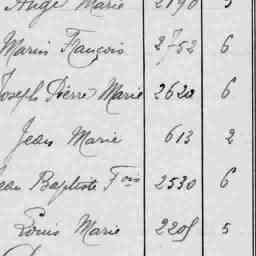 Ange Marie 2190 5
Marin François 2752 6
Joseph Pierre Marie 2620 6
Jean Marie 613 2
Jean Baptiste Fois 2530 6
Louis Marie 2205 5